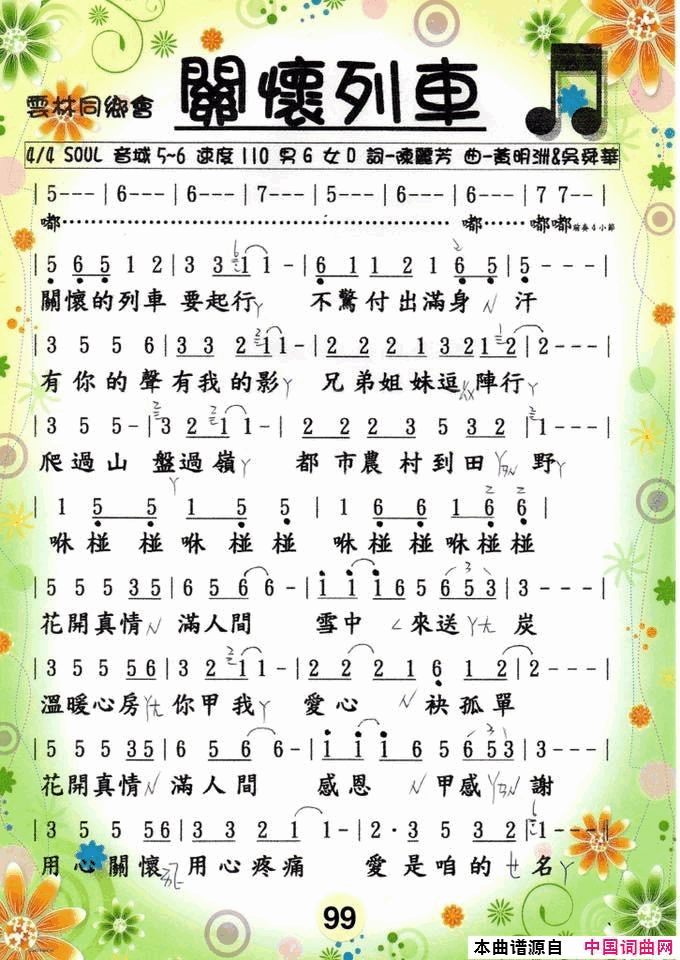 關懷列車
雲林同鄉會
4/4 SOUL 音域5~6 速度110 男G 女D 詞-陳麗芳 曲-黃明洲&吳舜華
| 5--- | 6--- | 6--- | 7--- | 5--- | 6--- | 6--- | 7--- |
嘟…………………………………………… 嘟…… 嘟嘟演奏4小節
| 5 6 5 1 2 | 3 3 1 1 - | 6 1 1 2 1 6 5 | 5 - - - |
關懷的列車 要起行ㄚ 不驚付出滿身ㄣ 汗
| 3 5 5 6 | 3 3 2 1 1 - | 2 2 2 1 3 2 1 2 | 2 - - - |
有你的聲有我的影ㄚ 兄弟姐妹逗 陣行ㄚ
| 3 5 5 - | 3 2 1 1 - | 2 2 2 3 5 3 2 | 1 - - - |
爬過山 盤過嶺ㄚ 都市農村到田 野ㄚ
| 1 5 5 1 5 5 | 1 6 6 1 6 6 |
咻 碰 碰 咻 碰 碰 咻 碰 碰咻碰碰
| 5 5 5 3 5 | 6 5 6 6 - | 1 1 1 6 5 6 5 3 | 3 - - - |
花開真情ㄣ 滿人間 雪中 ㄑ來送ㄤ 炭
| 3 5 5 5 6 | 3 2 1 1 - | 2 2 2 1 6 1 2 | 2 - - - |
溫暖心房ㄤ你甲我ㄚ 愛心 ㄣ 袂孤單
| 5 5 5 3 5 | 6 5 6 6 - | 1 1 1 6 5 6 5 3 | 3 - - - |
花開真情ㄣ 滿人間 感恩 ㄣ 甲感 謝
| 3 5 5 5 6 | 3 3 2 1 1 - | 2 · 3 5 3 2 | 1 - - - |
用心關懷 用心疼痛 愛是咱的ㄝ名ㄚ
99
本曲谱源自 中国词曲网